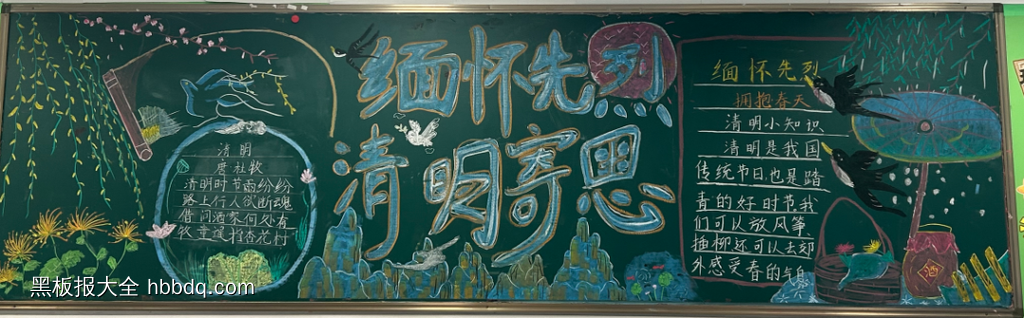 缅怀先烈
清明寄思
清明
唐杜牧
清明时节雨纷纷
路上行人欲断魂
借问酒家何处有
牧童遥指杏花村
缅怀先烈
拥抱春天
清明小知识
清明是我国
传统节日也是踏
青的好时节我
们可以放风筝
插柳还可以去郊
外感受春的气息
酒
黑板报大全 hbbdq.com